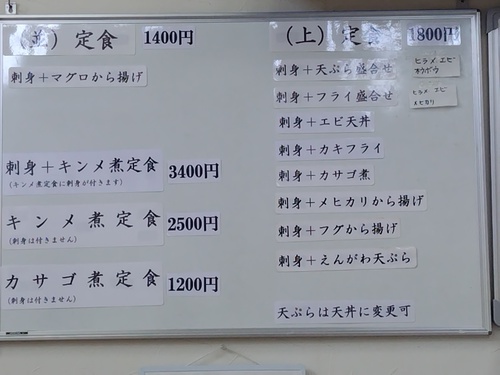 （並）定食 1400円
刺身＋マグロから揚げ
刺身＋キンメ煮定食 3400円
（キンメ煮定食に刺身が付きます）
キンメ煮定食 2500円
（刺身は付きません）
カサゴ煮定食 1200円
（刺身は付きません）
（上）定食 1800円
刺身＋天ぷら盛合せ
ヒラメ エビ
ホウボウ
刺身＋フライ盛合せ
ヒラメ エビ
メヒカリ
刺身＋エビ天丼
刺身＋カキフライ
刺身＋カサゴ煮
刺身＋メヒカリから揚げ
刺身＋フグから揚げ
刺身＋えんがわ天ぷら
天ぷらは天丼に変更可